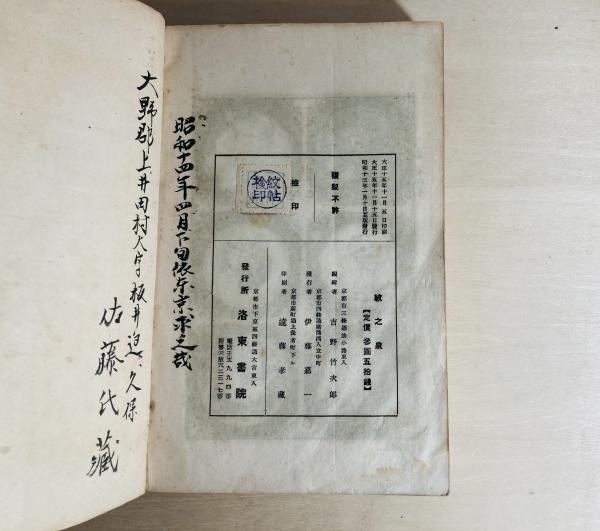 大正十五年十一月五日印刷
大正十五年十一月十五日發行
昭和十三年一月十日五版發行
複製不許
檢印
紋帖
檢印
紋之泉
【定價 參圓五拾錢】
京都市三條通油小路東入
編輯者 吉野竹次郎
發行者 伊藤嘉一
印刷者 遠藤孝藏
京都市下京區四條通大宮東入
發行所 洛東書院
電話壬生九九四番
昭和十四年四月下旬依東京求之哉
大野郡上井田村大字板井迫、久保
佐藤氏藏